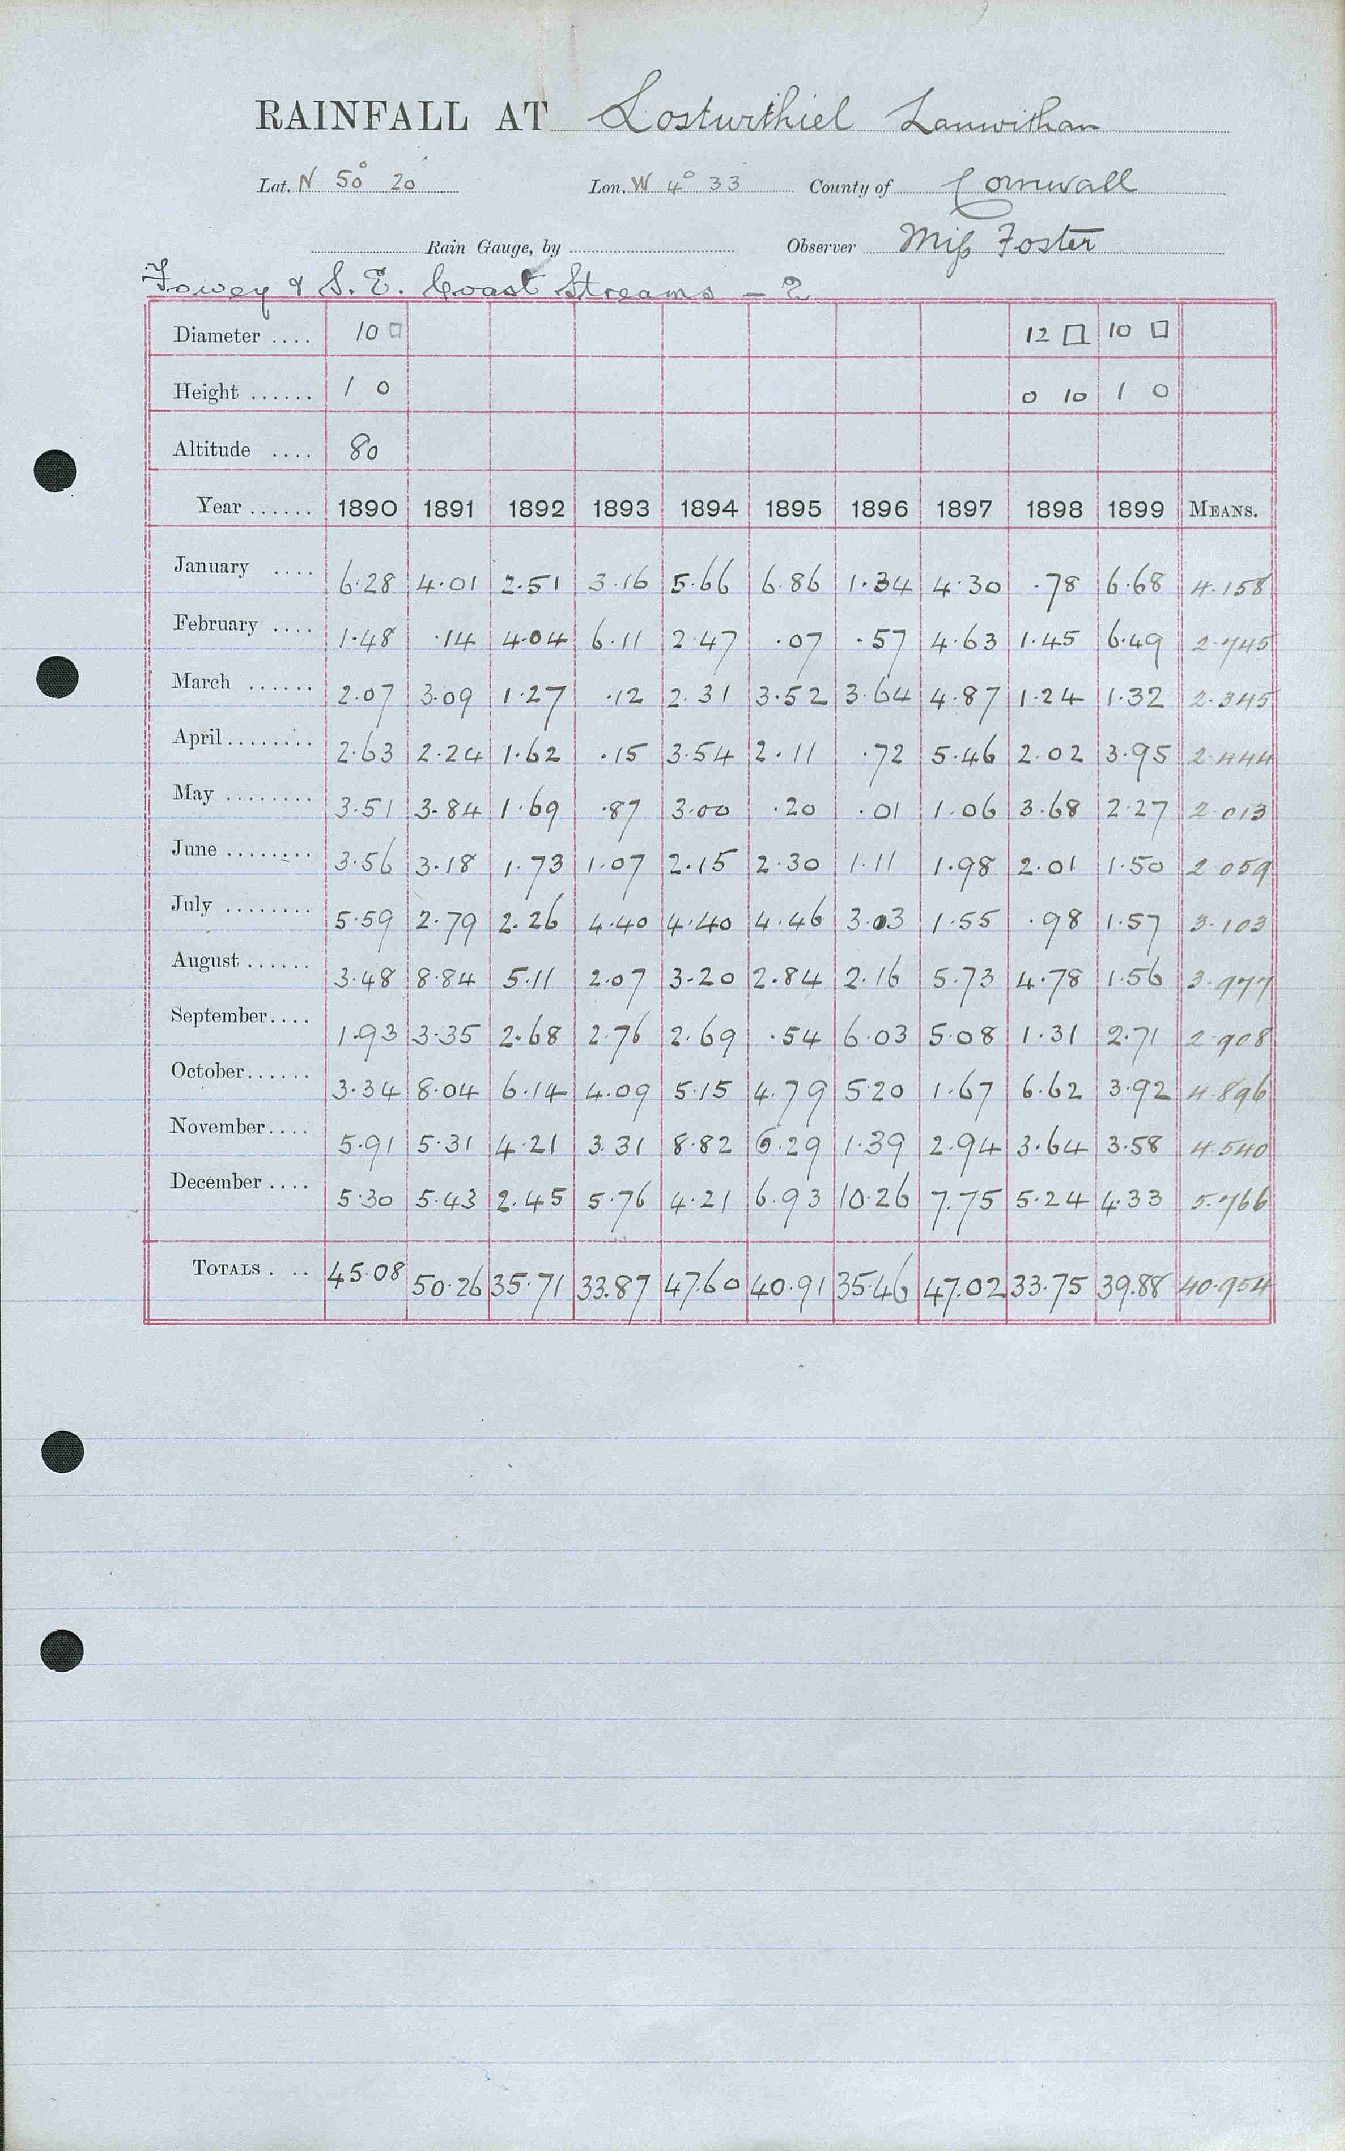 RAINFALL AT Lostwithiel Lanwithan
Lat. N 50° 20 Lon. W 4° 33 County of Cornwall
Rain Gauge, by Observer Miss Foster
Fowey & S. E. Coast Streams - 2
Diameter .... 10 □ 12 □ 10 □
Height ...... 1 0 0 10 1 0
Altitude .... 80
Year ...... 1890 1891 1892 1893 1894 1895 1896 1897 1898 1899 MEANS.
January .... 6.28 4.01 2.51 3.16 5.66 6.86 1.34 4.30 .78 6.68 4.158
February .... 1.48 .14 4.04 6.11 2.47 .07 .57 4.63 1.45 6.49 2.745
March ...... 2.07 3.09 1.27 .12 2.31 3.52 3.64 4.87 1.24 1.32 2.345
April ........ 2.63 2.24 1.62 .15 3.54 2.11 .72 5.46 2.02 3.95 2.444
May ........ 3.51 3.84 1.69 .87 3.00 .20 .01 1.06 3.68 2.27 2.013
June ........ 3.56 3.18 1.73 1.07 2.15 2.30 1.11 1.98 2.01 1.50 2.059
July ........ 5.59 2.79 2.26 4.40 4.40 4.46 3.03 1.55 .98 1.57 3.103
August ...... 3.48 8.84 5.11 2.07 3.20 2.84 2.16 5.73 4.78 1.56 3.977
September .... 1.93 3.35 2.68 2.76 2.69 .54 6.03 5.08 1.31 2.71 2.908
October ...... 3.34 8.04 6.14 4.09 5.15 4.79 5.20 1.67 6.62 3.92 4.896
November .... 5.91 5.31 4.21 3.31 8.82 6.29 1.39 2.94 3.64 3.58 4.540
December .... 5.30 5.43 2.45 5.76 4.21 6.93 10.26 7.75 5.24 4.33 5.766
TOTALS . .. 45.08 50.26 35.71 33.87 47.60 40.91 35.46 47.02 33.75 39.88 40.954